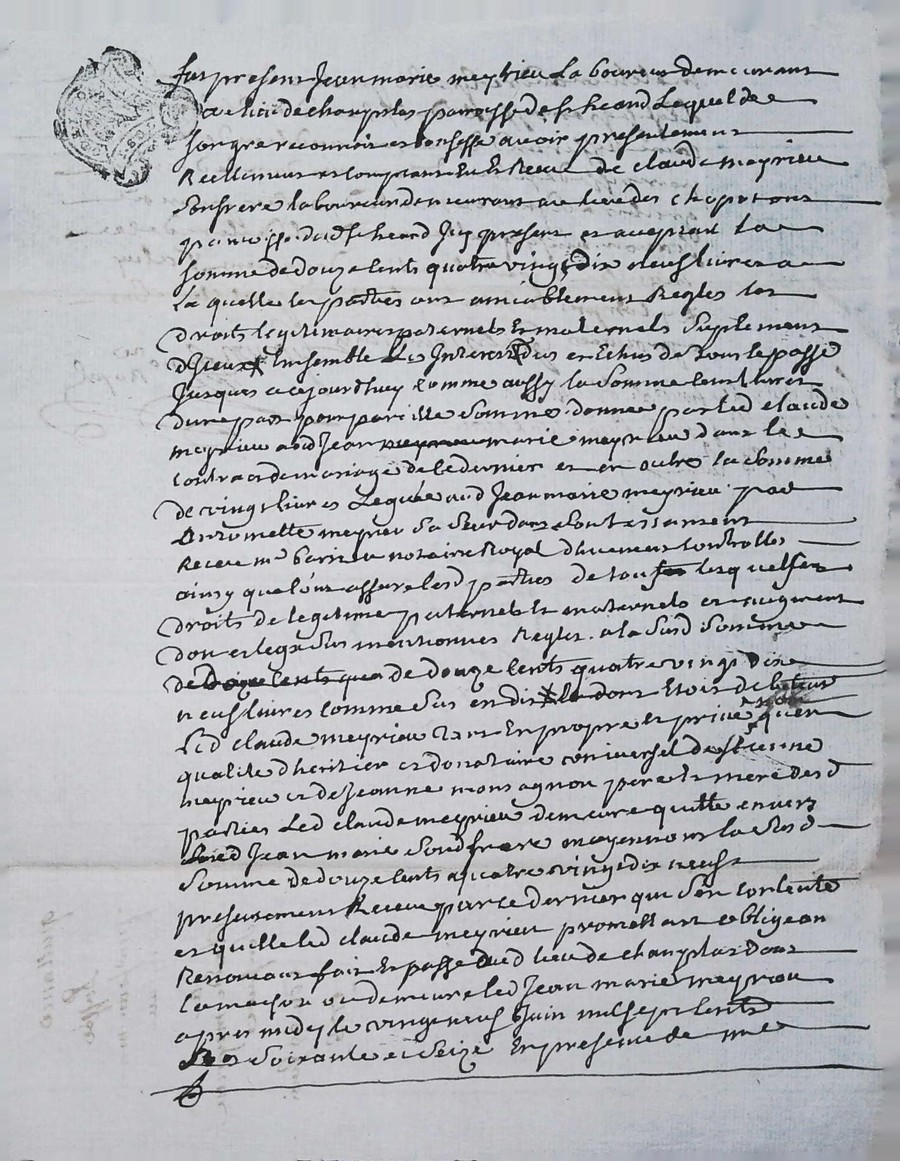 fut present Jean marie meyrieu laboureur demeurant
au lieu de champlas paroisse de st heand Lequel de
son gre reconnoit et confesse avoir presentement
Reellement et comptant Eu et Receu de claude meyrieu
son frere laboureur demeurant au lieu des chapotons
paroisse dud st heand Icy present et acceptant la
somme de douze cents quatre vingt dix neuf livres a
la quelle les parties ont amiablement Regles les
droits legitimaires paternels Et maternels suplement
d'Iceux Ensemble les Interets dus et Echus de tout le passé
Jusques a ce jourdhuy comme aussy la somme cent livres
dune part pour pareille somme donnee par led claude
meyrieu aud Jean marie meyrieu dans le
contrat de mariage de ce dernier et en outre la somme
de vingt livres Leguée aud Jean marie meyrieu par
meyrieu sa soeur dans son testament
Receu me notaire Royal duement controllé
ainsy que l'ont assure lesd parties de tous lesquels
droits de legitime paternels et maternels et augment
don et legs sus mentionnes Regles a la susd somme
de de douze cents quatre vingt dix
neuf livres comme sus en dit dont Etoit debiteur
Led claude meyrieu tant En propre et privé qu'en
qualite d'heritier et donataire universel de Etienne
meyrieu et de Jeanne montagnon pere et mere desd
parties Led claude meyrieu demeure quitte envers
led Jean marie son frere moyennant la susd
somme de douze cents quatre vingt dix neuf
presentement Receue par ce dernier qui s'en contente
et quitte led claude meyrieu promettant obligeant
Renonceant fait Et passé aud lieu de champlas dans
la maison ou demeure led Jean marie meyrieu
apres midy le vingt neuf Juin mil sept cents
soixante et seize En presence de me